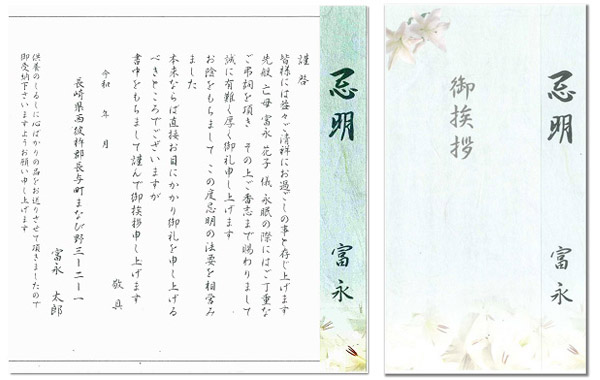 忌明
富永
謹啓
皆様には益々ご清祥にお過ごしの事と存じ上げます
先般 亡母 富永 花子 儀 永眠の際にはご丁重な
ご弔詞を頂き その上ご香志まで賜わりまして
誠に有難く厚く御礼申し上げます
お陰をもちまして この度忌明の法要を相営み
ました
本来ならば直接お目にかかり御礼を申し上げる
べきところでございますが
書中をもちまして謹んで御挨拶申し上げます
敬具
令和 年 月
長崎県西彼杵郡長与町まなび野三ー二ー一
富永 太郎
供養のしるしに心ばかりの品をお送りさせて頂きましたので
御受納下さいますようお願い申し上げます
忌明
富永
御挨拶